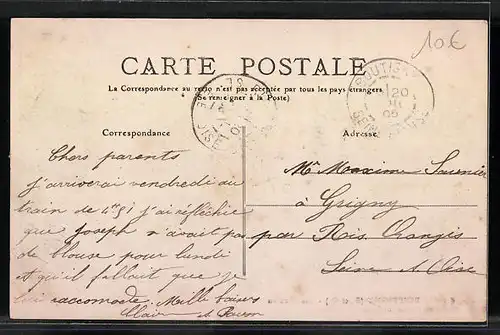 10 €
CARTE POSTALE
La Correspondance au recto n'est pas acceptée par tous les pays étrangers
(Se renseigner à la Poste)
Correspondance
Adresse
Chers parents
j'arriverai vendredi au
train de 4h 51 j'ai réfléchie
que Joseph n'avait pas
de blouse pour lundi
et qu'il fallait que je
lui raccomode. Mille baisers
Mr Maxime Saunier
à Grigny
par Ris Orangis
Seine & Oise
BOUTIGNY
20
09